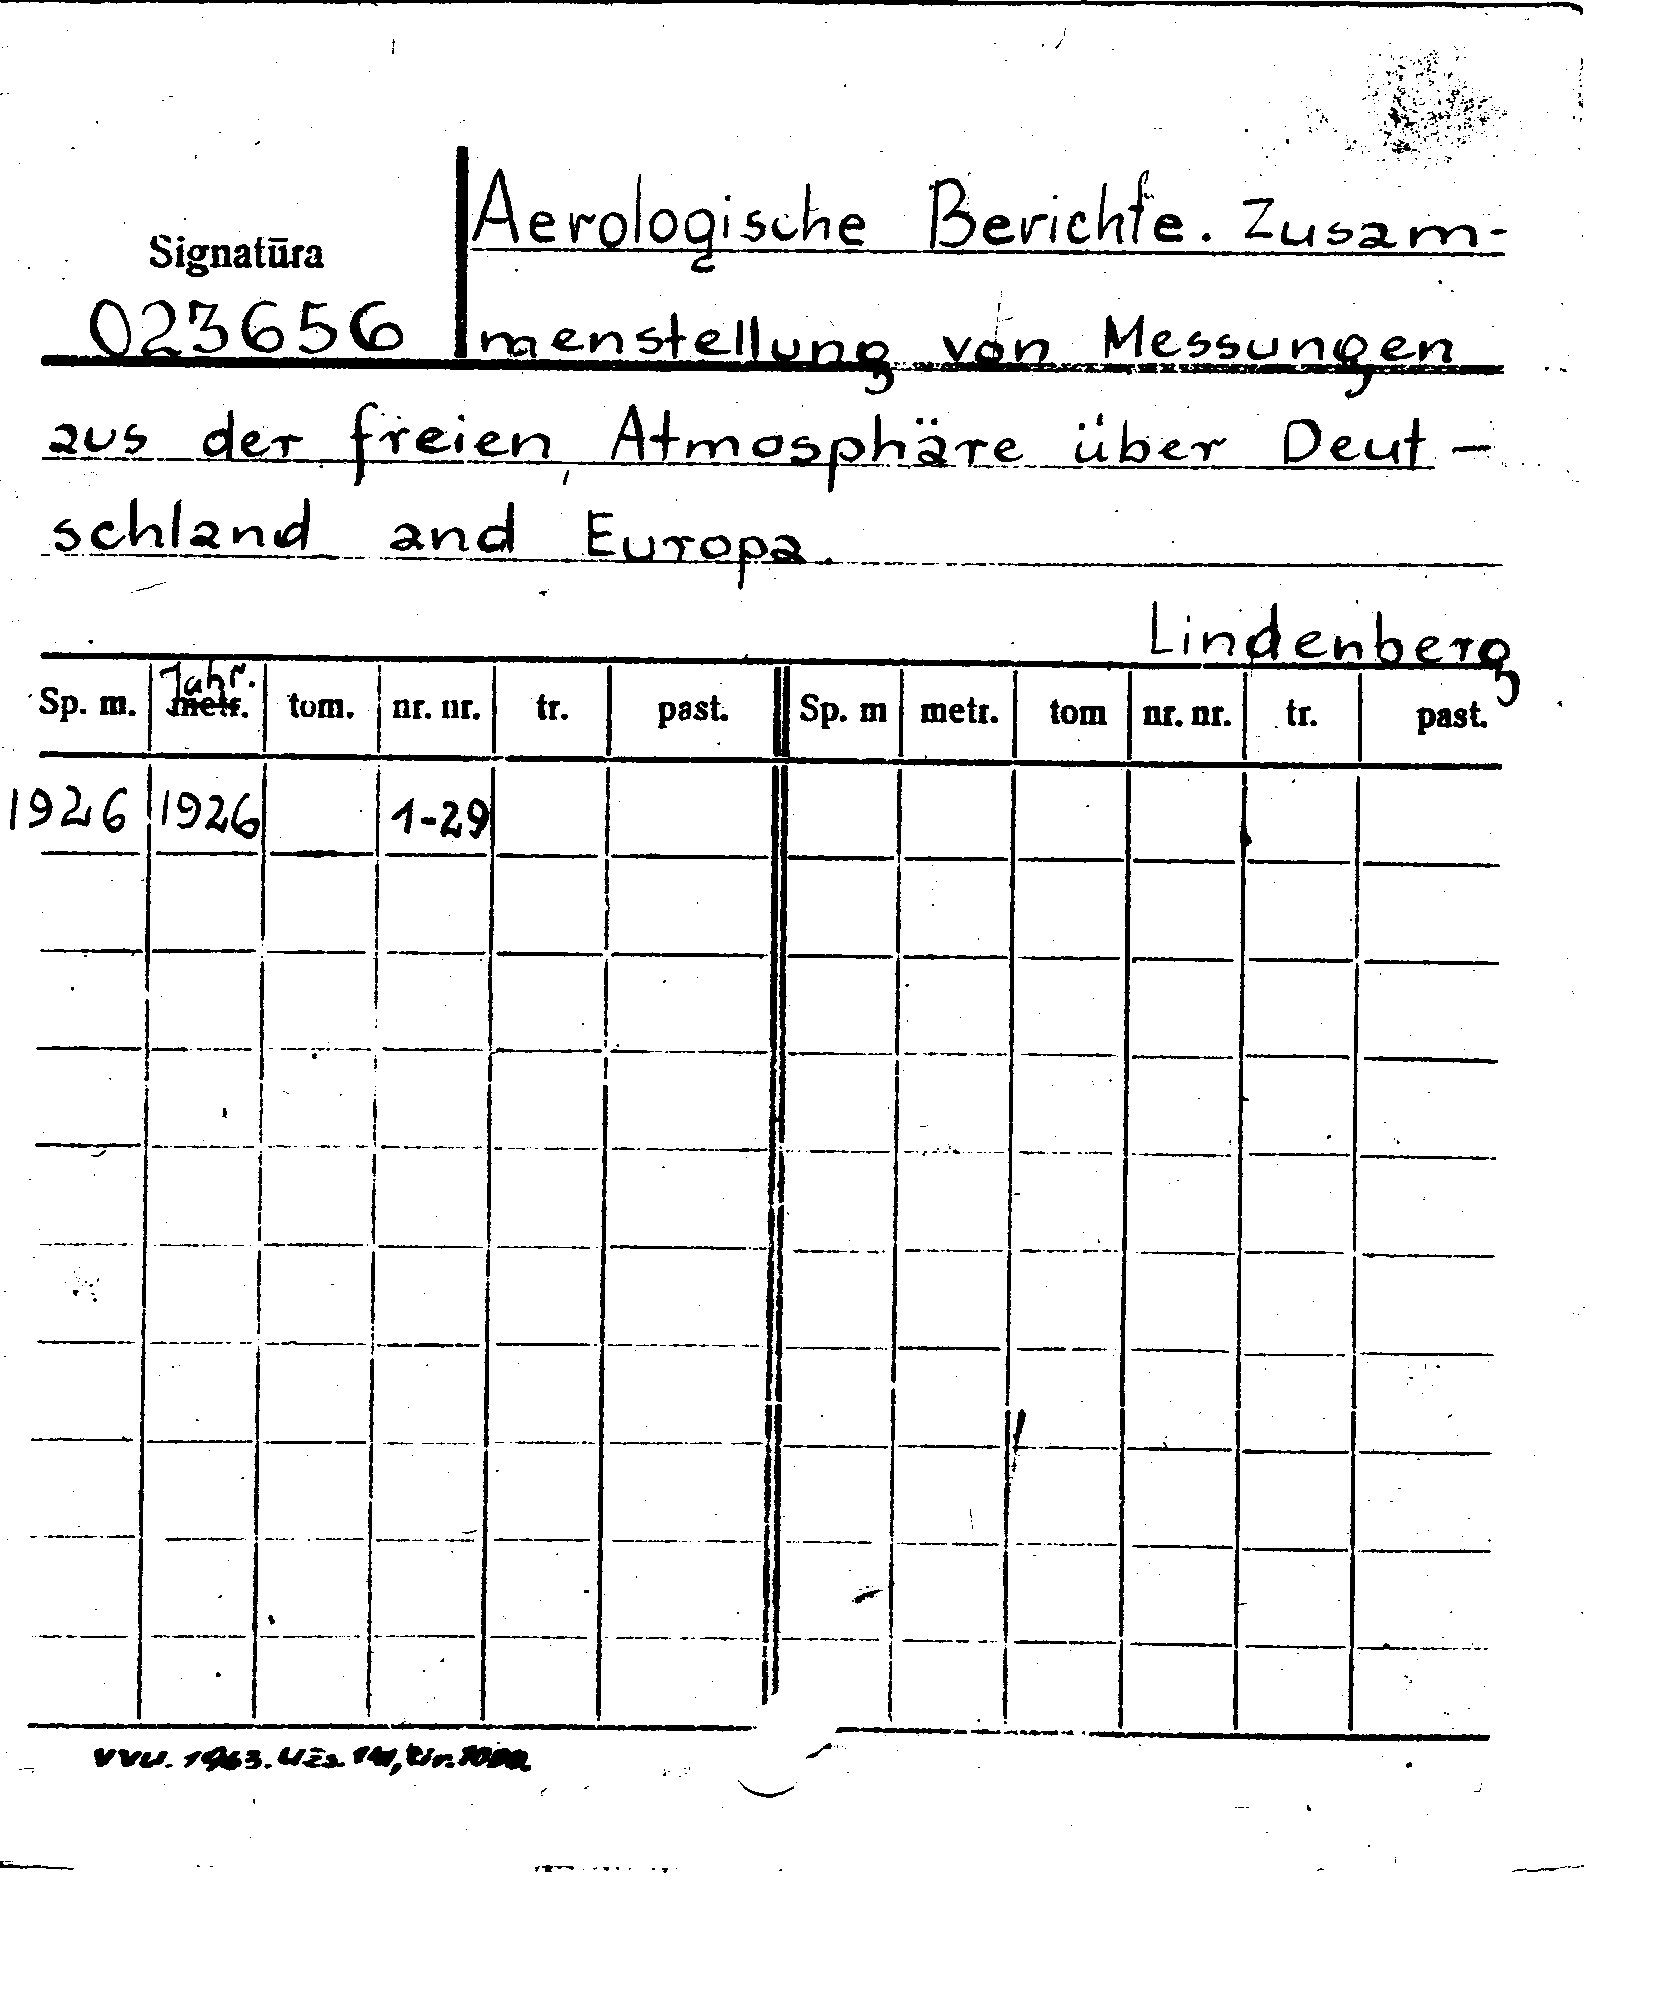 Aerologische Berichte. Zusam-
Signatūra
023656 menstellung von Messungen
aus der freien Atmosphäre über Deut-
schland and Europa.
Lindenberg
Jahr.
Sp. m. metr. tom. nr. nr. tr. past. Sp. m metr. tom nr. nr. tr. past.
1926 1926 1-29
VVU. 1963. Užs.